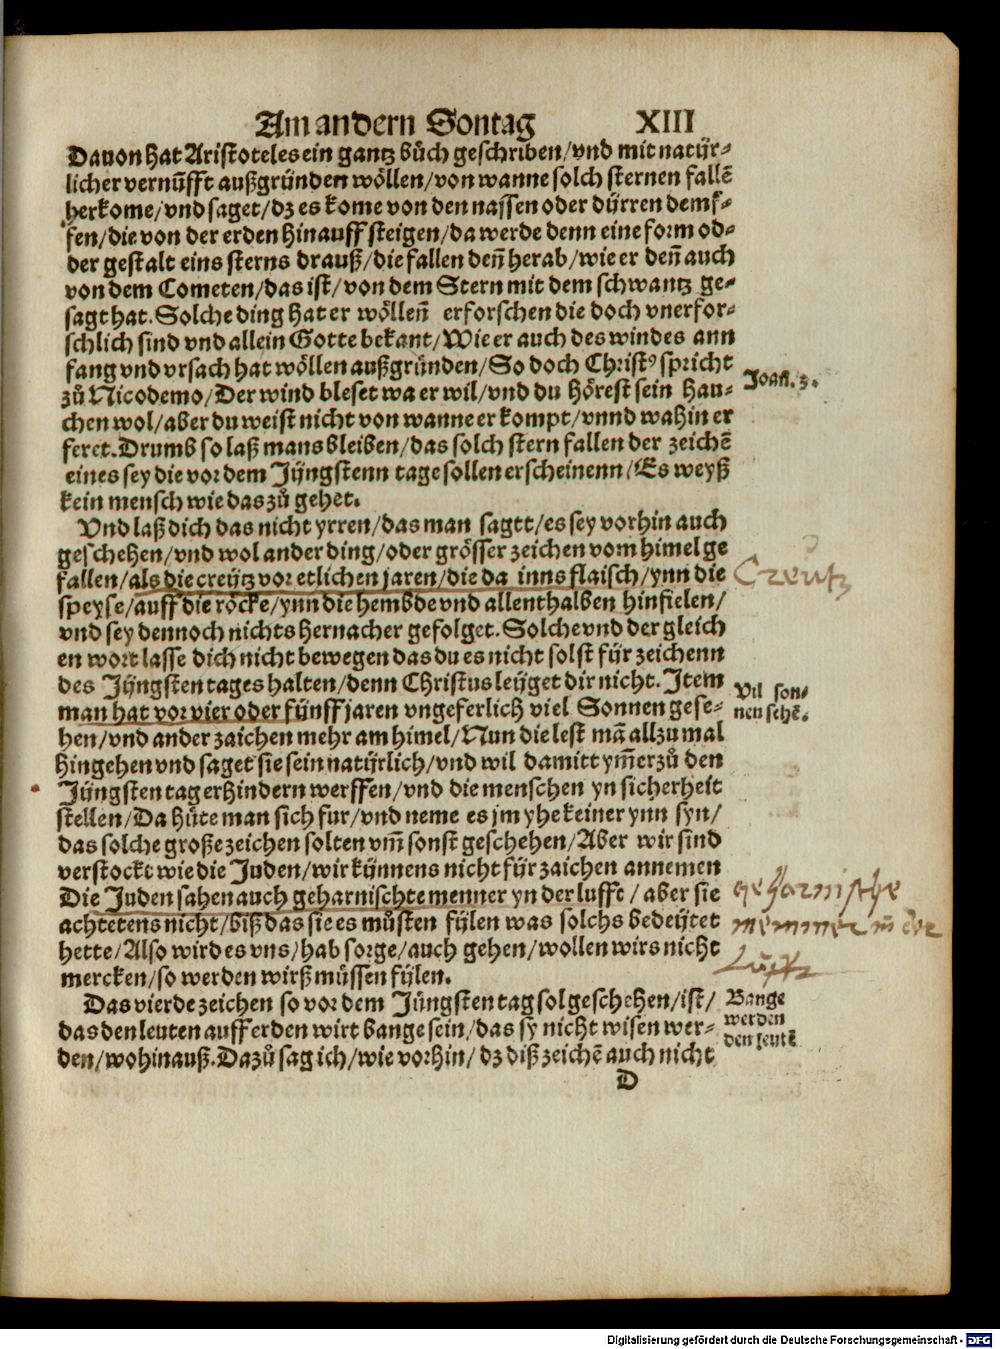 Am andern Sontag XIII
Dauon hat Aristoteles ein gantz bůch geschriben/vnd mit natÿr⸗
licher vernũfft außgründen wöllen/von wanne solch sternen fallẽ
herkome/vnd saget/dz es kome von den nassen oder dÿrren demf⸗
fen/die von der erden hinauff steigen/da werde denn eine form od⸗
der gestalt eins sterns drauß/die fallen deñ herab/wie er deñ auch
von dem Cometen/das ist/von dem Stern mit dem schwantz ge⸗
sagt hat. Solche ding hat er wölleñ erforschen die doch vnerfor⸗
schlich sind vnd allein Gotte bekant/Wie er auch des windes ann
fang vnd vrsach hat wöllen außgründen/So doch Christꝰ spricht
zů Nicodemo/Der wind bleset wa er wil/vnd du hörest sein hau⸗
chen wol/aber du weist nicht von wanne er kompt/vnnd wahin er
feret. Drumb so laß mans bleiben/das solch stern fallen der zeichẽ
eines sey die vor dem Jÿngstenn tage sollen erscheinenn/Es weyß
kein mensch wie das zů gehet.
Vnd laß dich das nicht yrren/das man sagtt/es sey vorhin auch
geschehen/vnd wol ander ding/oder grösser zeichen vom himel ge
fallen/als die creÿtz vor etlichen jaren/die da inns flaisch/ynn die
speyse/auff die röcke/ynn die hembde vnd allenthalben hinfielen/
vnd sey dennoch nichts hernacher gefolget. Solche vnd der gleich
en wort lasse dich nicht bewegen das du es nicht solst fÿr zeichenn
des Jÿngsten tages halten/denn Christus leÿget dir nicht. Item
man hat vor vier oder fÿnff jaren vngeferlich viel Sonnen gese⸗
hen/vnd ander zaichen mehr am himel/Nun die lest mã all zu mal
hingehen vnd saget sie sein natÿrlich/vnd wil damitt ym̃erzů den
Jÿngsten tag erhindern werffen/vnd die menschen yn sicherheit
stellen/Da hüte man sich fur/vnd neme es jm yhe keiner ynn syn/
das solche große zeichen solten vm̃ sonst geschehen/Aber wir sind
verstockt wie die Juden/wir kÿnnens nicht fÿr zaichen annemen
Die Juden sahen auch geharnischte menner yn der lufft/aber sie
achtetens nicht/biß das sie es můsten fÿlen was solchs bedeÿtet
hette/Also wird es vns/hab sorge/auch gehen/wollen wirs nicht
mercken/so werden wirß müssen fÿlen.
Das vierde zeichen so vor dem Jüngsten tag sol geschehen/ist/
das den leuten auff erden wirt bange sein/das sÿ nicht wisen wer⸗
den/wohinauß. Dazů sag ich/wie vorhin/dz diß zeichẽ auch nicht
D
Joañ. 3.
Creutz
Vil son⸗
nen sehẽ.
geharnischte
menner in der
Lufft
Bange
werden
den leutẽ
Digitalisierung gefördert durch die Deutsche Forschungsgemeinschaft - DFG